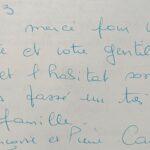 3
merci pour
et votre gentil
et l'habitat son
passé un
famille.
et Pierre Ca